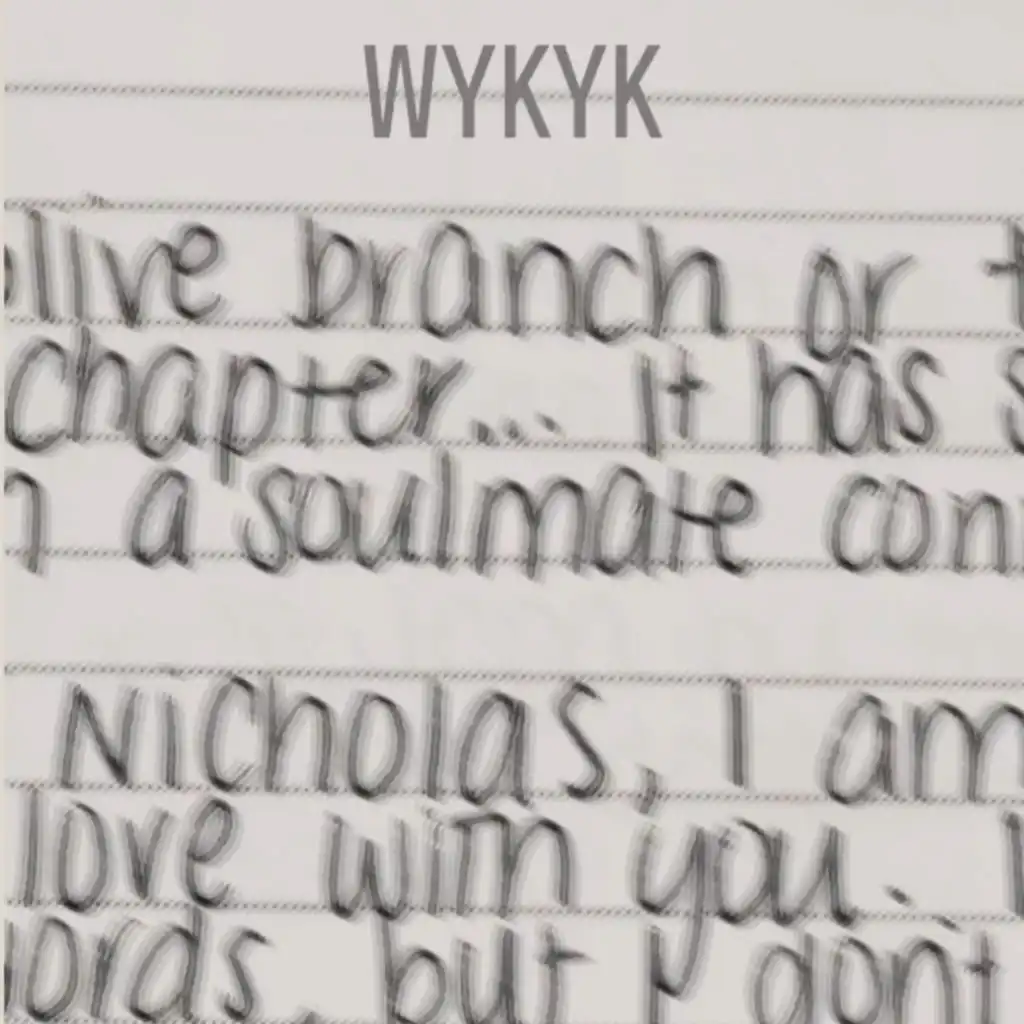 WYKYK
olive branch or t
chapter... It has s
n a soulmate con
Nicholas, I am
love with you. I
words, but I don't